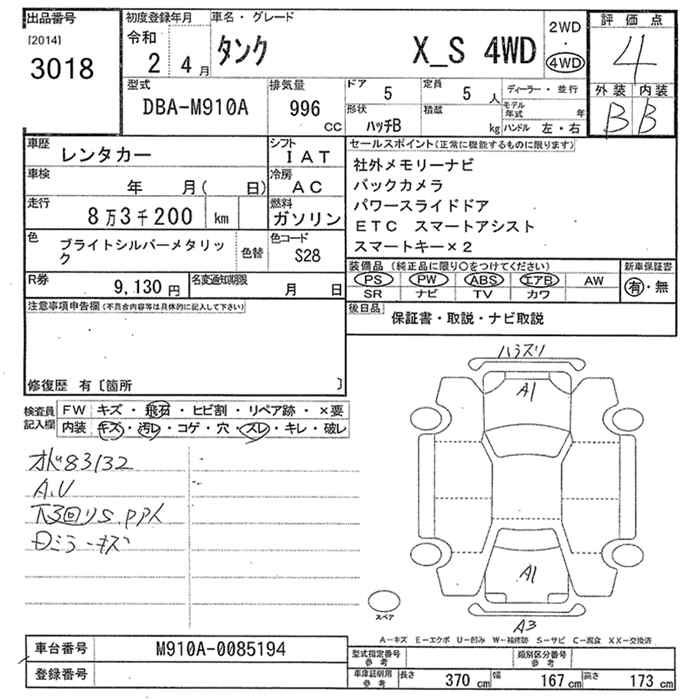 出品番号
[2014]
3018
初度登録年月
令和
2 4月
車名・グレード
タンク X_S 4WD
2WD
・
4WD
評価点
4
外装 内装
B B
型式
DBA-M910A
排気量
996
CC
ドア
5
定員
5 人
形状
ハッチB
積載
kg
ディーラー・並行
モデル年式 年
ハンドル 左・右
車歴
レンタカー
シフト
IAT
車検
年 月( 日)
冷房
AC
走行
8万3千200 km
燃料
ガソリン
色
ブライトシルバーメタリック
色替
色コード
S28
R券
9,130 円
名変通知期限
月 日
セールスポイント(正常に機能するものに限ります)
社外メモリーナビ
バックカメラ
パワースライドドア
ETC スマートアシスト
スマートキー×2
装備品(純正品に限り○をつけてください)
PS PW ABS エアB AW
SR ナビ TV カワ
新車保証書
有・無
後日品
保証書・取説・ナビ取説
注意事項申告欄(不具合内容等は具体的に記入して下さい)
修復歴 有〔箇所 〕
検査員記入欄
FW キズ・飛石・ヒビ割・リペア跡・×要
内装 キズ・汚レ・コゲ・穴・スレ・キレ・破レ
83132
A.U
下回りS.PP人
日ミラーキズ
ハラスリ
A1
A1
A3
スペア
A-キズ E-エクボ U-凹み W-補修跡 S-サビ C-腐食 XX-交換済
車台番号
M910A-0085194
登録番号
型式指定番号
参考
類別区分番号
参考
車庫証明用
参考
長さ 370 cm
幅 167 cm
高さ 173 cm